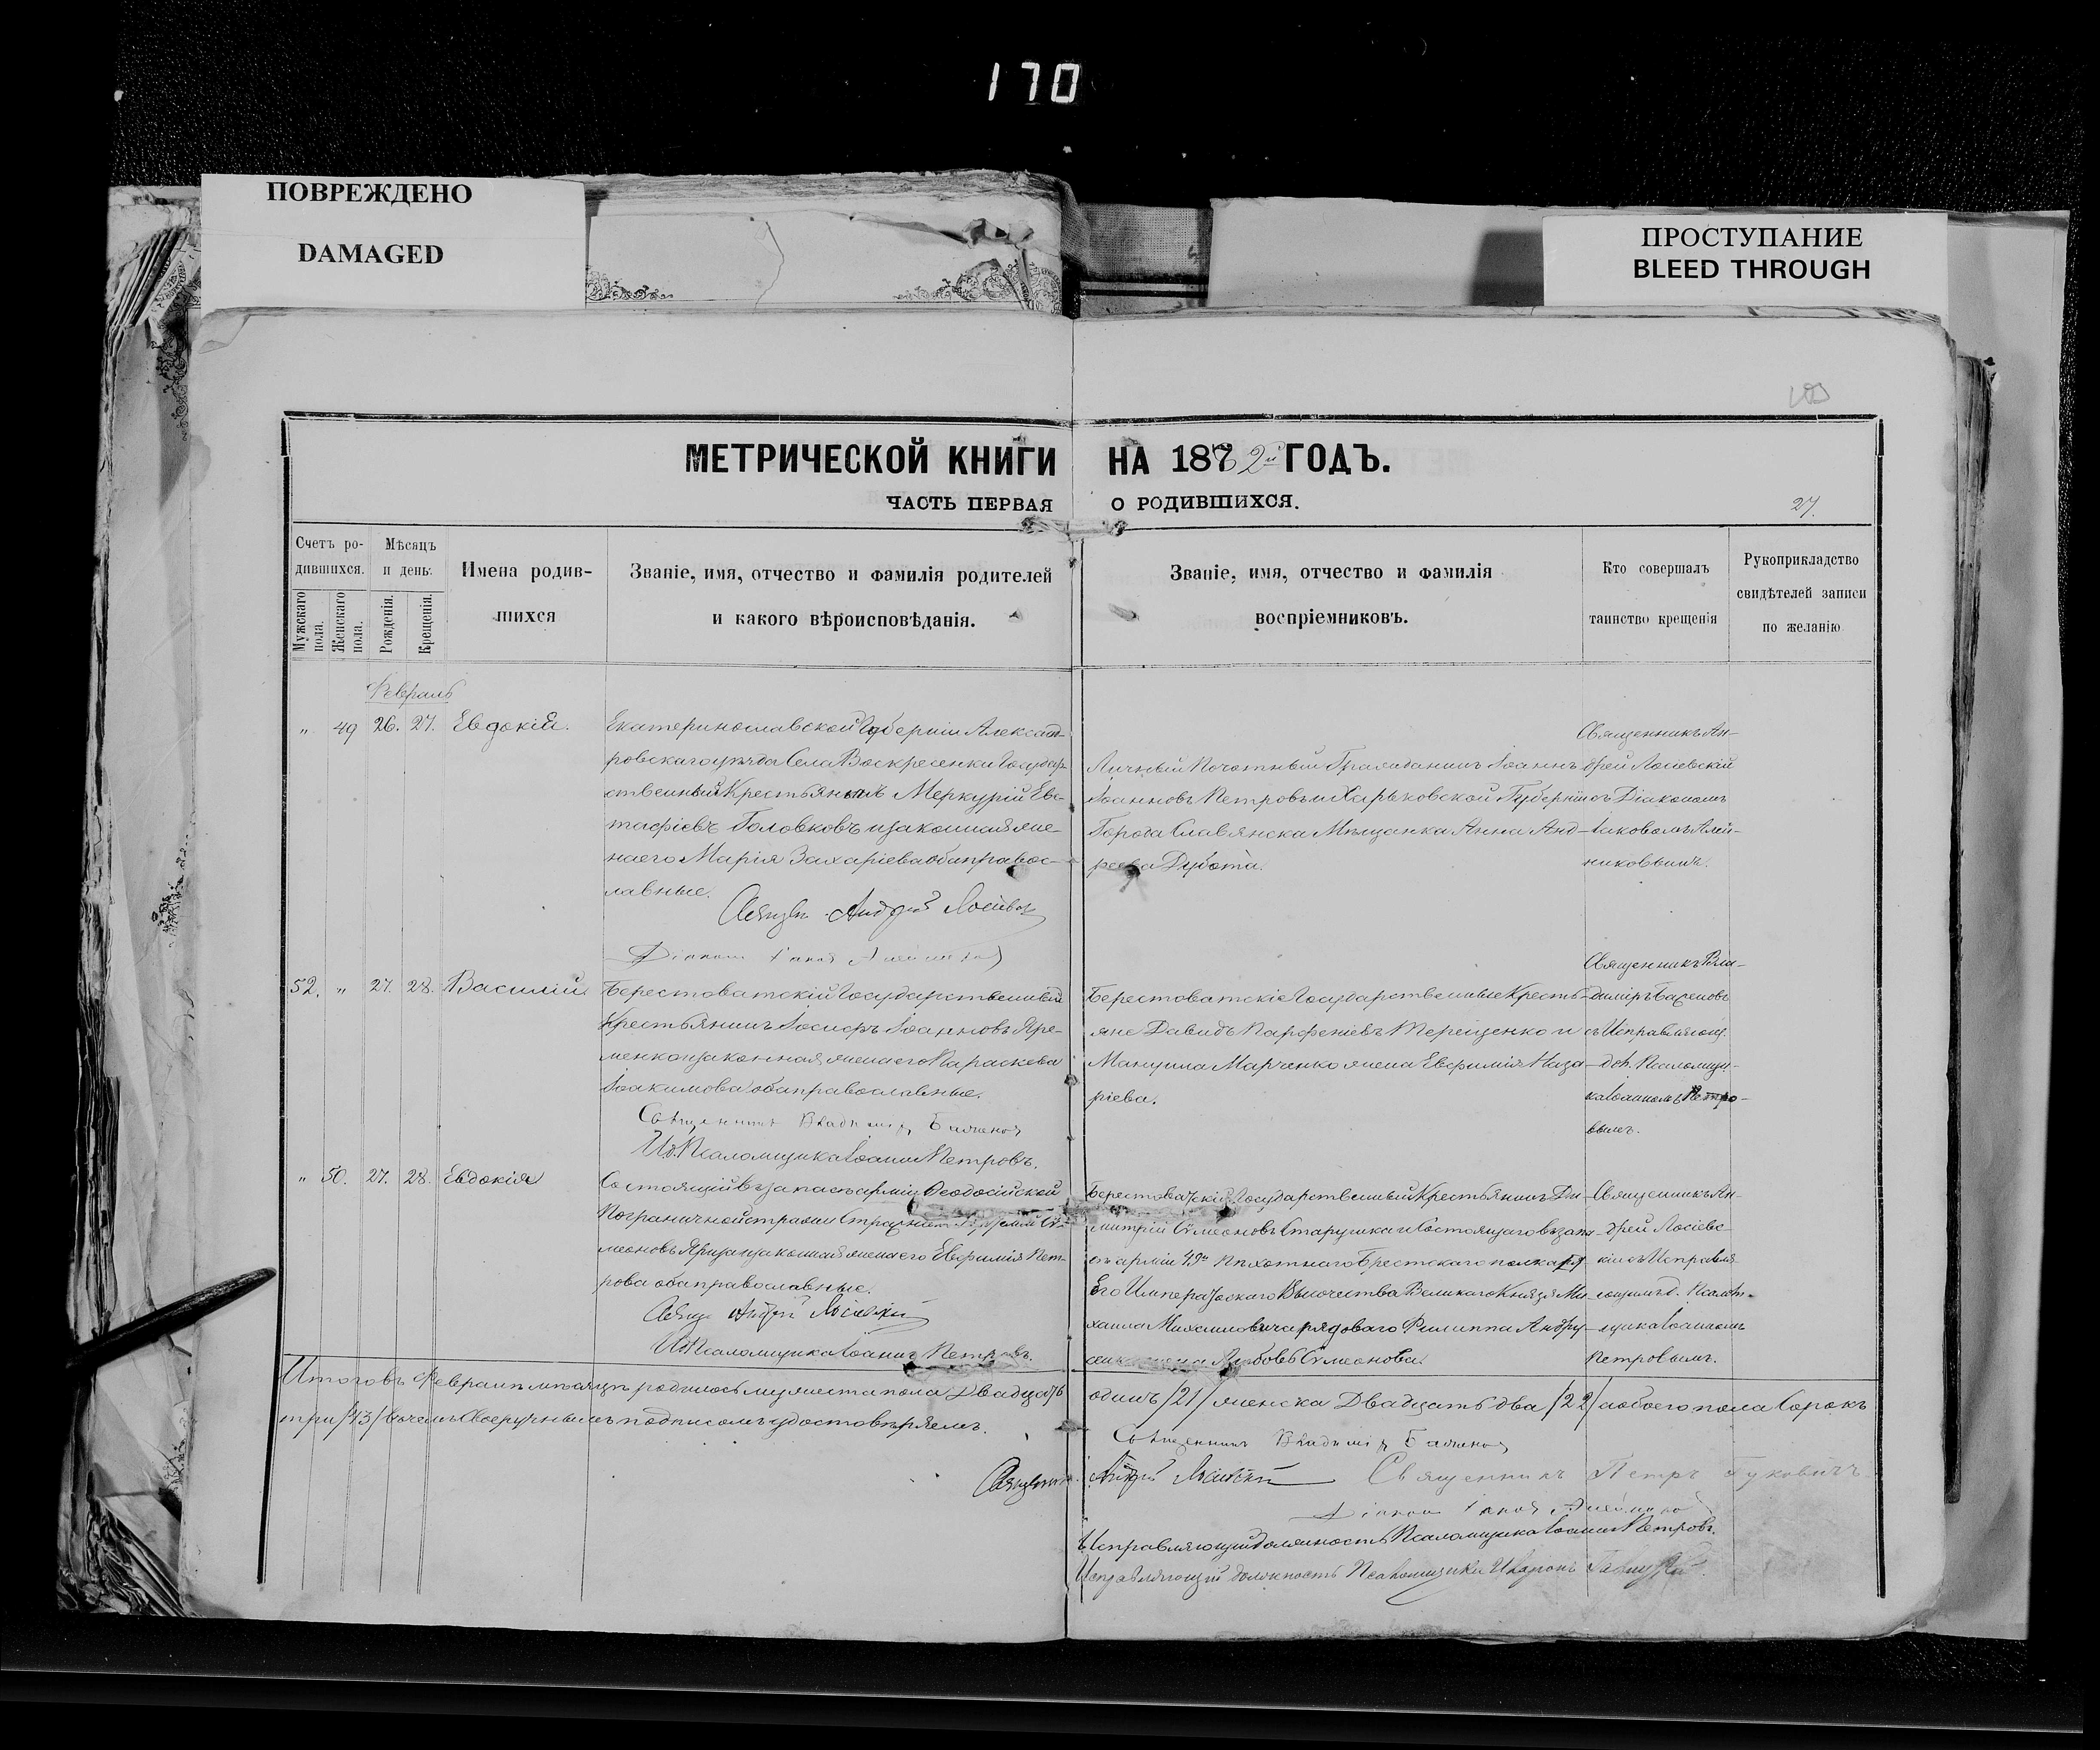 170
ПОВРЕЖДЕНО
DAMAGED
ПРОСТУПАНИЕ
BLEED THROUGH
МЕТРИЧЕСКОЙ КНИГИ НА 1882й ГОДЪ.
ЧАСТЬ ПЕРВАЯ О РОДИВШИХСЯ.
27.
Счетъ ро-
дившихся.
Мужскаго пола.
Женскаго пола.
Мѣсяцъ
и день.
Рожденія.
Крещенія.
Имена родив-
шихся
Званіе, имя, отчество и фамилія родителей
и какого вѣроисповѣданія.
Званіе, имя, отчество и фамилія
воспріемниковъ.
Кто совершалъ
таинство крещенія
Рукоприкладство
свидѣтелей записи
по желанію
Февраль
" 49 26. 27. Евдокія.
Екатеринославской Губерніи Александ-
ровскаго уѣзда Села Воскресенки Государ-
ственный Крестьянинъ Меркурій Евс-
тафіевъ Головковъ и законная же-
на его Марія Захаріева оба правос-
лавные.
Свящ. Андрей Лосіевскій
Діаконъ Іаковъ Алейниковъ
Личный Почотный Гражданинъ Іоаннъ
Іоанновъ Петровъ и Харьковской Губерніи
Города Славянска Мѣщанка Анна Анд-
реева
Священникъ Ан-
дрей Лосіевскій
съ Діакономъ
Іаковомъ Алей-
никовымъ.
52. " 27. 28. Василій
Берестоватскій Государственный
Крестьянинъ Іосифъ Іоанновъ Яре-
менко и законная жена его Параскева
Іоакимова оба православные.
Священникъ Владиміръ Баженовъ
И.д. Псаломщика Іоаннъ Петровъ.
Берестоватскіе Государственные Кресть-
яне Давидъ Парфеніевъ Терещенко и
Мануила Марченко жена Евфимія Наза-
ріева.
Священникъ Вла-
диміръ Баженовъ
съ Исправляющ.
дол. Псаломщи-
ка Іоанномъ Петро-
вымъ.
" 50. 27. 28. Евдокія
Состоящій въ запасѣ арміи Ѳеодосійской
Пограничной стражи Стражникъ Сѵ-
меоновъ и законная жена его Евфимія Пет-
рова оба православные.
Свящ. Андрей Лосіевскій
И.д. Псаломщика Іоаннъ Петровъ.
Берестоватскій Государственный Крестьянинъ Ди-
митрій Сѵмеоновъ Старушка и Состоящаго въ запа-
сѣ арміи 49го Пѣхотнаго Брестскаго полка
Его Императорскаго Высочества Великаго Князя Ми-
хаила Михаиловича рядоваго Филиппа Андру-
жена Любовь Сѵмеонова.
Священникъ Ан-
дрей Лосіевс-
кій съ Исправля-
ющимъ д. Псалом-
щика Іоанномъ
Петровымъ.
Итого въ Февралѣ мѣсяцѣ родилось мужеска пола Двадцать одинъ /21/ женска Двадцать два /22/ а обоего пола Сорокъ
три /43/ въ чемъ Своеручнымъ подписомъ удостовѣряемъ.
Священникъ Владиміръ Баженовъ
Священникъ Андрей Лосіевскій Священникъ Петръ
Діаконъ Іаковъ Алейниковъ
Исправляющій должность Псаломщика Іоаннъ Петровъ.
Исправляющій должность Псаломщика